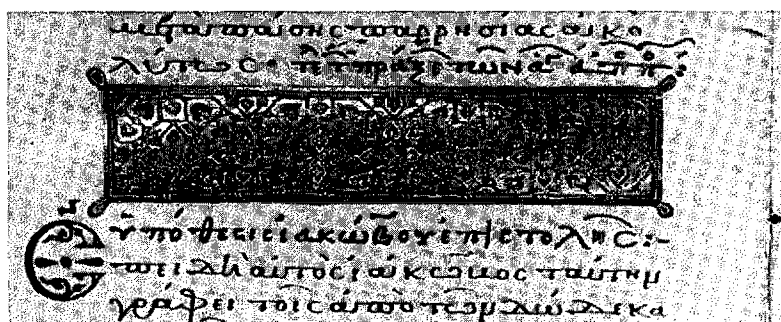 μετὰ πάσης παρρησίας ἀκω
λύτως· πράξεων
ὑπόθεσις ἰακώβου ἐπιστολῆς:-
Ἐπειδὴ αὐτὸς ἰάκωβος ταύτην
γράφει τοῖς ἀπὸ τῶν δώδεκα